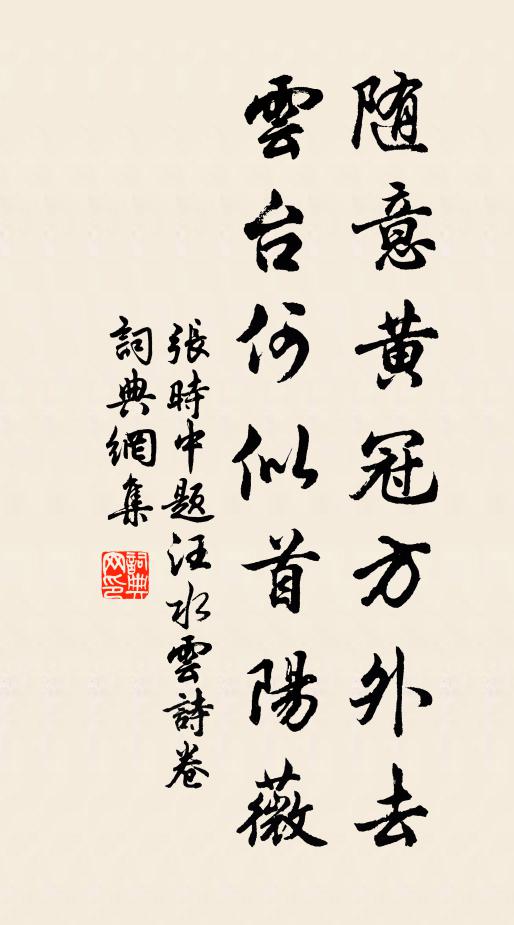 随意黄冠方外去
雲台何似首陽薇
張時中題汪水雲詩卷
詞典網集
詞典
网印